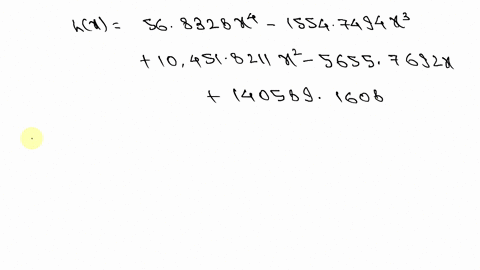 h(x) = 56.8328x⁴ - 1554.7494x³
+ 10,451.8211x² - 5655.7692x
+ 140589.1608